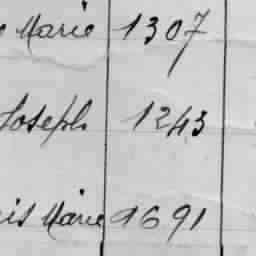 Marie 1307
Joseph 1243
Marie 1691